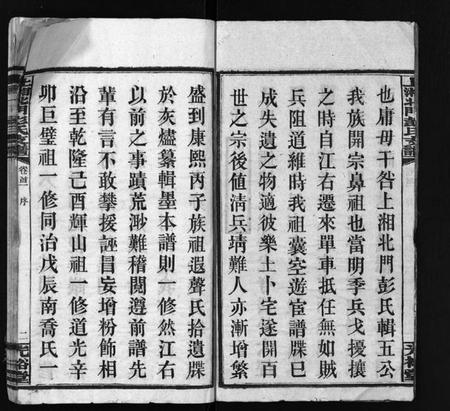 也庸毋干咎上湘北門彭氏輯五公
我族開宗鼻祖也當明季兵戈擾攘
之時自江右遷來單車抵任無如賊
兵阻道維時我祖囊空遊宦譜牒巳
成失遺之物適彼樂土卜宅遂開百
世之宗後値清兵靖難人亦漸增繁
盛到康熙丙子族祖遐聲氏拾遺牒
於灰燼纂輯墨本譜則一修然江右
以前之事蹟荒渺難稽閱遵前譜先
輩有言不敢攀援誣冒妄增粉飾相
沿至乾隆己酉輝山祖一修道光辛
卯巨璧祖一修同治戊辰南喬氏一
卷首 序
二